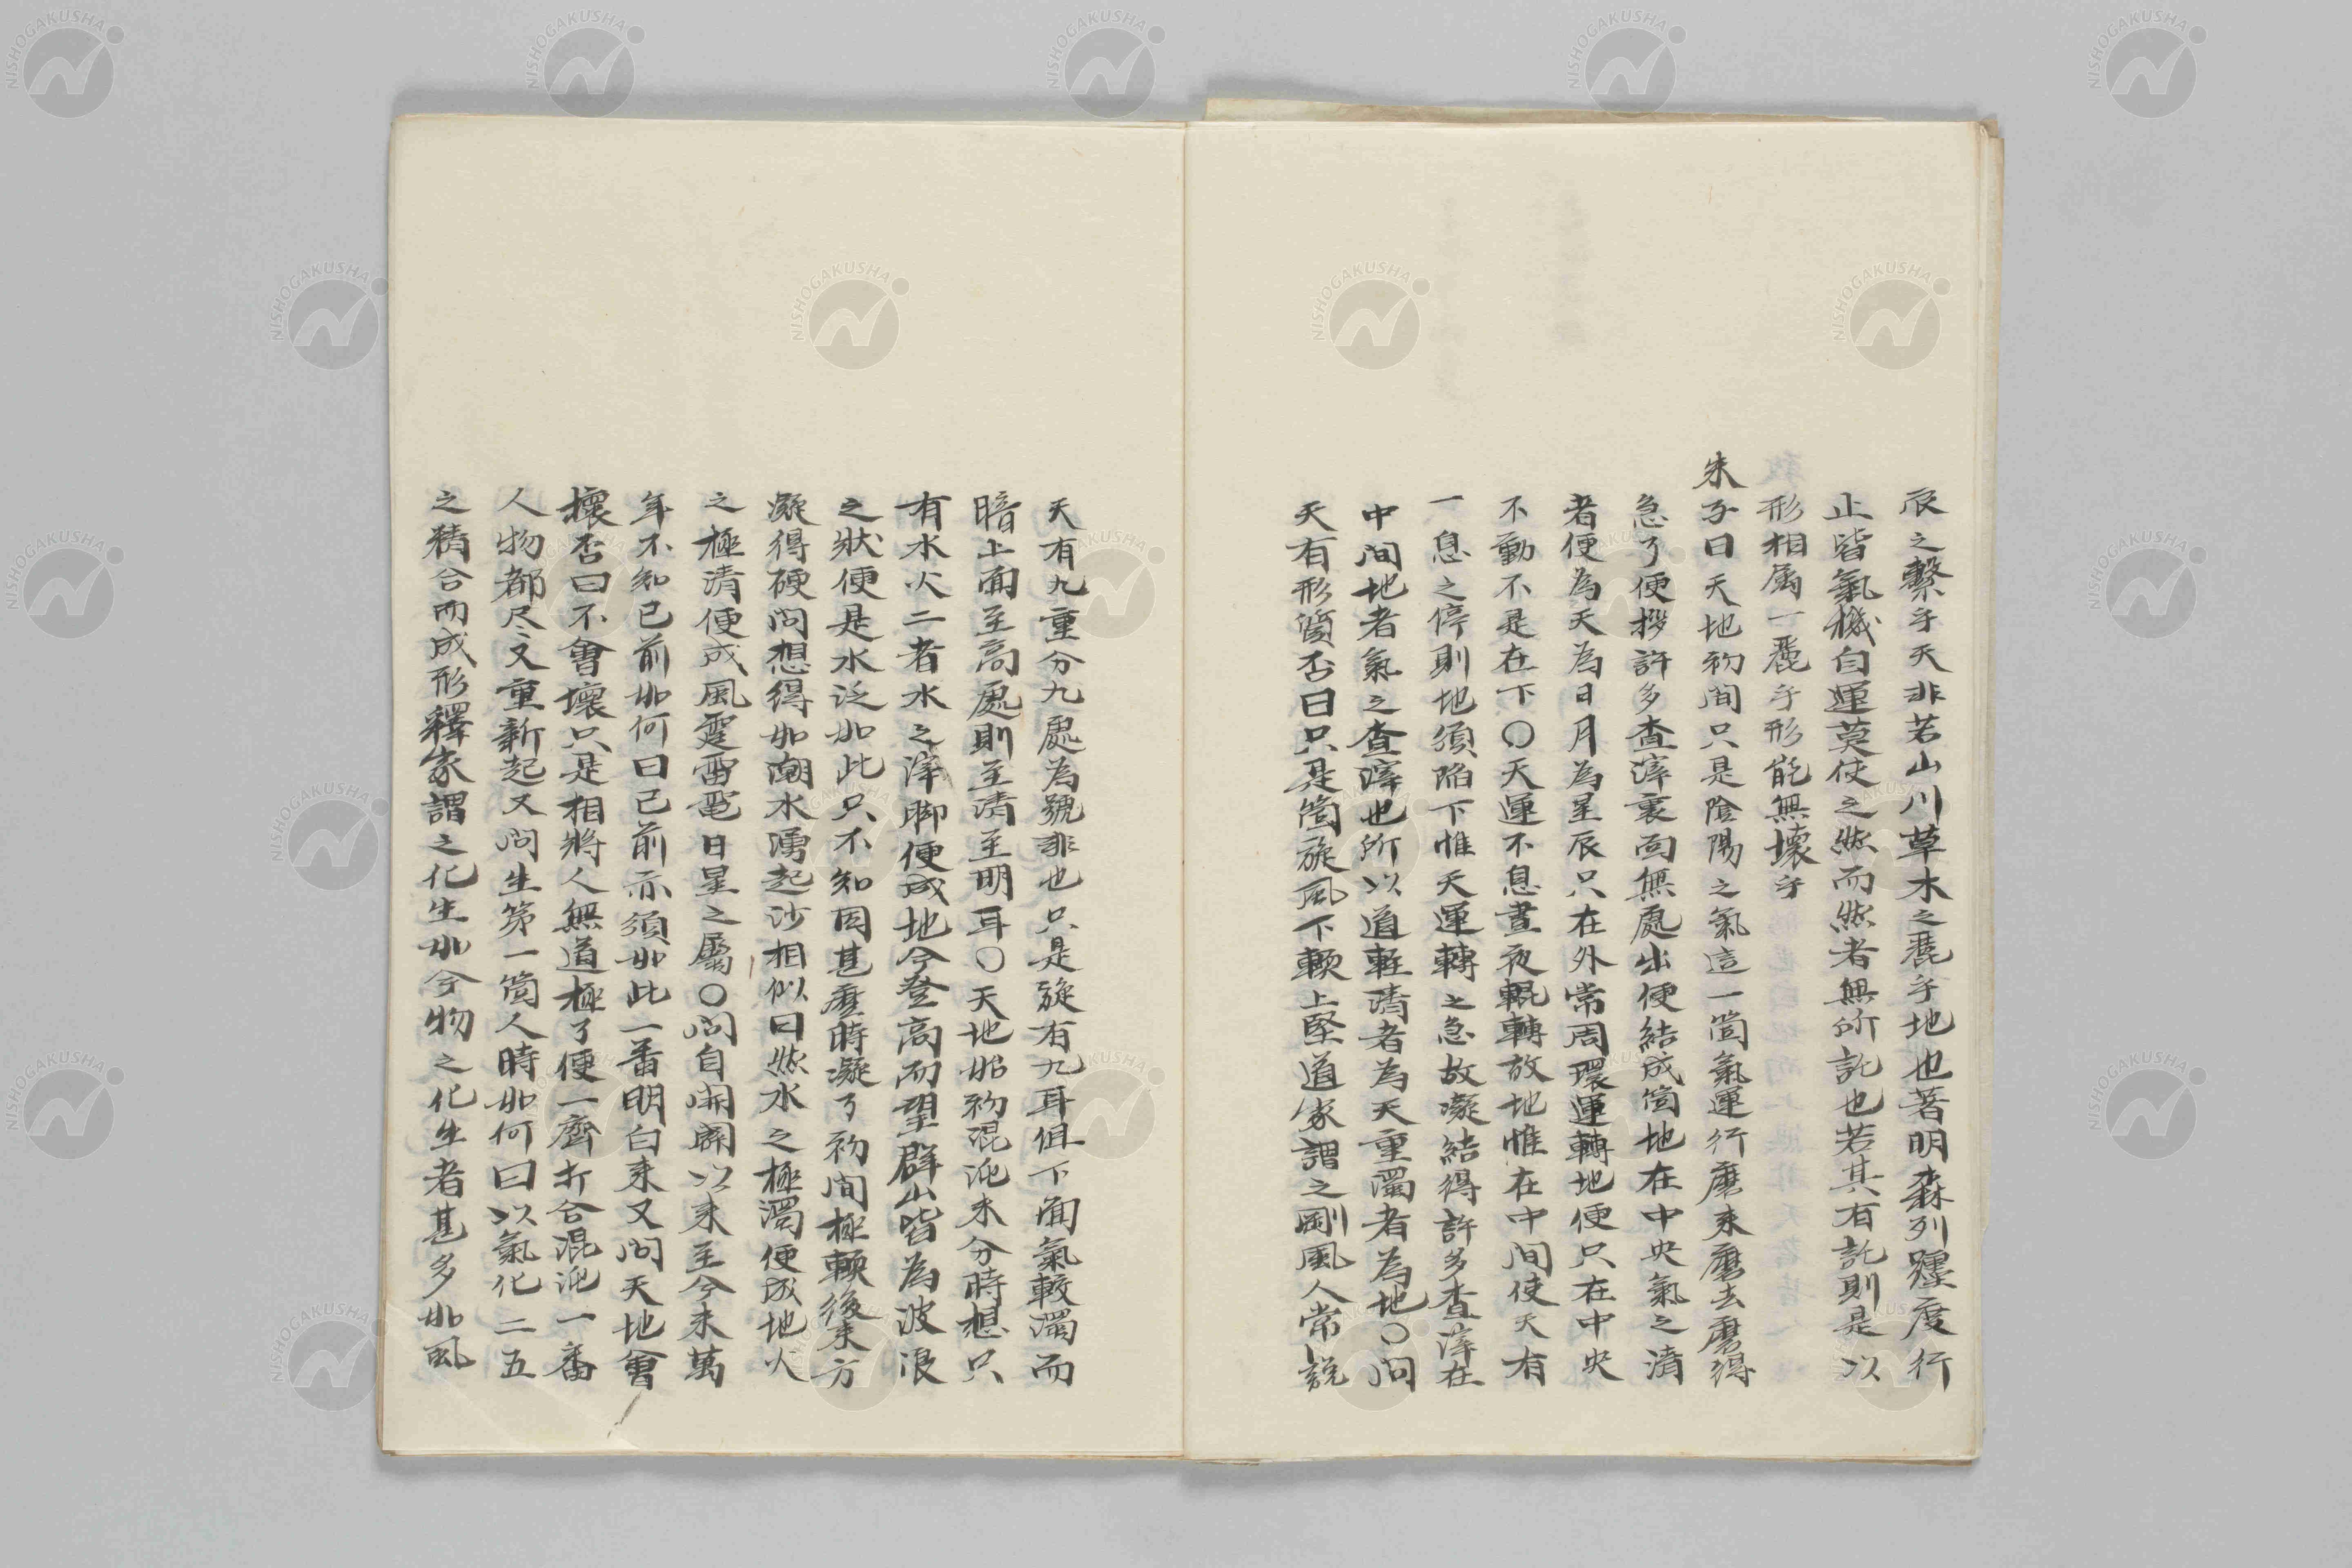 辰之繫乎天非若山川草木之麗乎地也著明森列躔度行
止皆氣機自運莫使之然而然者無所託也若其有託則是以
形相屬一麗乎形能無壞乎
朱子曰天地初間只是陰陽之氣這一箇氣運行磨来磨去磨得
急了便拶許多查滓裏面無處出便結成箇地在中央氣之清
者便為天為日月為星辰只在外常周環運轉地便只在中央
不動不是在下〇天運不息晝夜輥轉故地惟在中間使天有
一息之停則地須陷下惟天運轉之急故凝結得許多查滓在
中間地者氣之查滓也所以道軽清者為天重濁者為地〇問
天有形質否曰只是箇旋風下輭上堅道家謂之剛風人常説
天有九重分九處為號非也只是旋有九耳但下面氣較濁而
暗上面至高處則至清至明耳〇天地始初混沌未分時想只
有水火二者水之滓脚便成地今登高而望群山皆為波浪
之狀便是水泛如此只不知因甚麼時凝了初間極輭後来方
凝得硬問想得如潮水湧起沙相似曰然水之極濁便成地火
之極清便成風霆雷電日星之屬〇問自開闢以来至今未萬
年不知已前如何曰已前亦須如此一番明白来又問天地會
壞否曰不會壞只是相將人無道極了便一齊打合混沌一番
人物都尽又重新起又問生第一箇人時如何曰以氣化二五
之精合而成形釋家謂之化生如今物之化生者甚多如虱
NISHOGAKUSHA